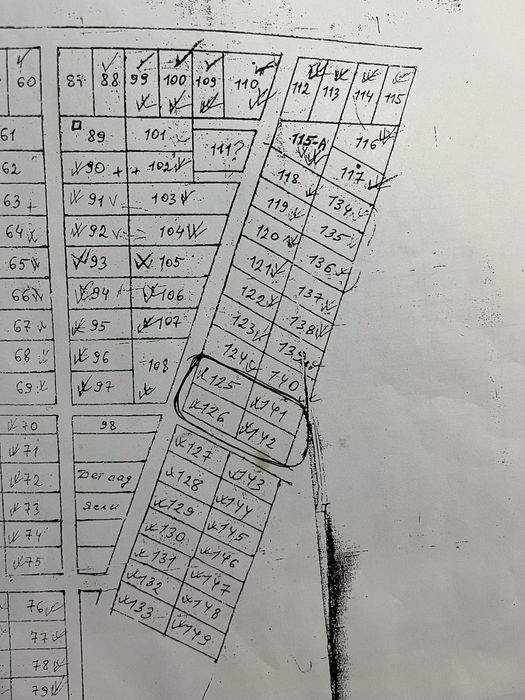 60 87 88 99 100 109 110 112 113 114 115
61 89 101 111? 115-А 116
62 90 102 118 117
63 91 103 119 134
64 92 104 120 135
65 93 105 121 136
66 94 106 122 137
67 95 107 123 138
68 96 108 124 139
69 97 125 140
126 141
142
70 98 127
71 128 143
72 Дет сад 129 144
73 Ясли 130 145
74 131 146
75 132 147
76 133 148
77 149
78
79